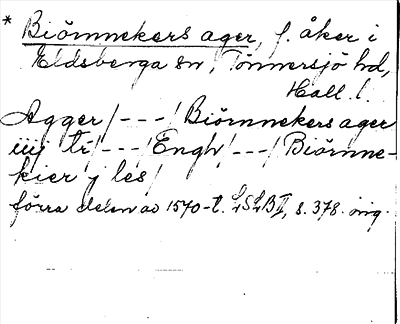 * Biörnnekers ager, f. åker i
Eldsberga sn, Tönnersjö hd,
Hall. l.
Agger /---/ Biörnnekers ager
iiij tr /---/ Engh /---/ Biörnne-
kier j les /
förra delen av 1570-t. LSLB II, s. 378. orig.